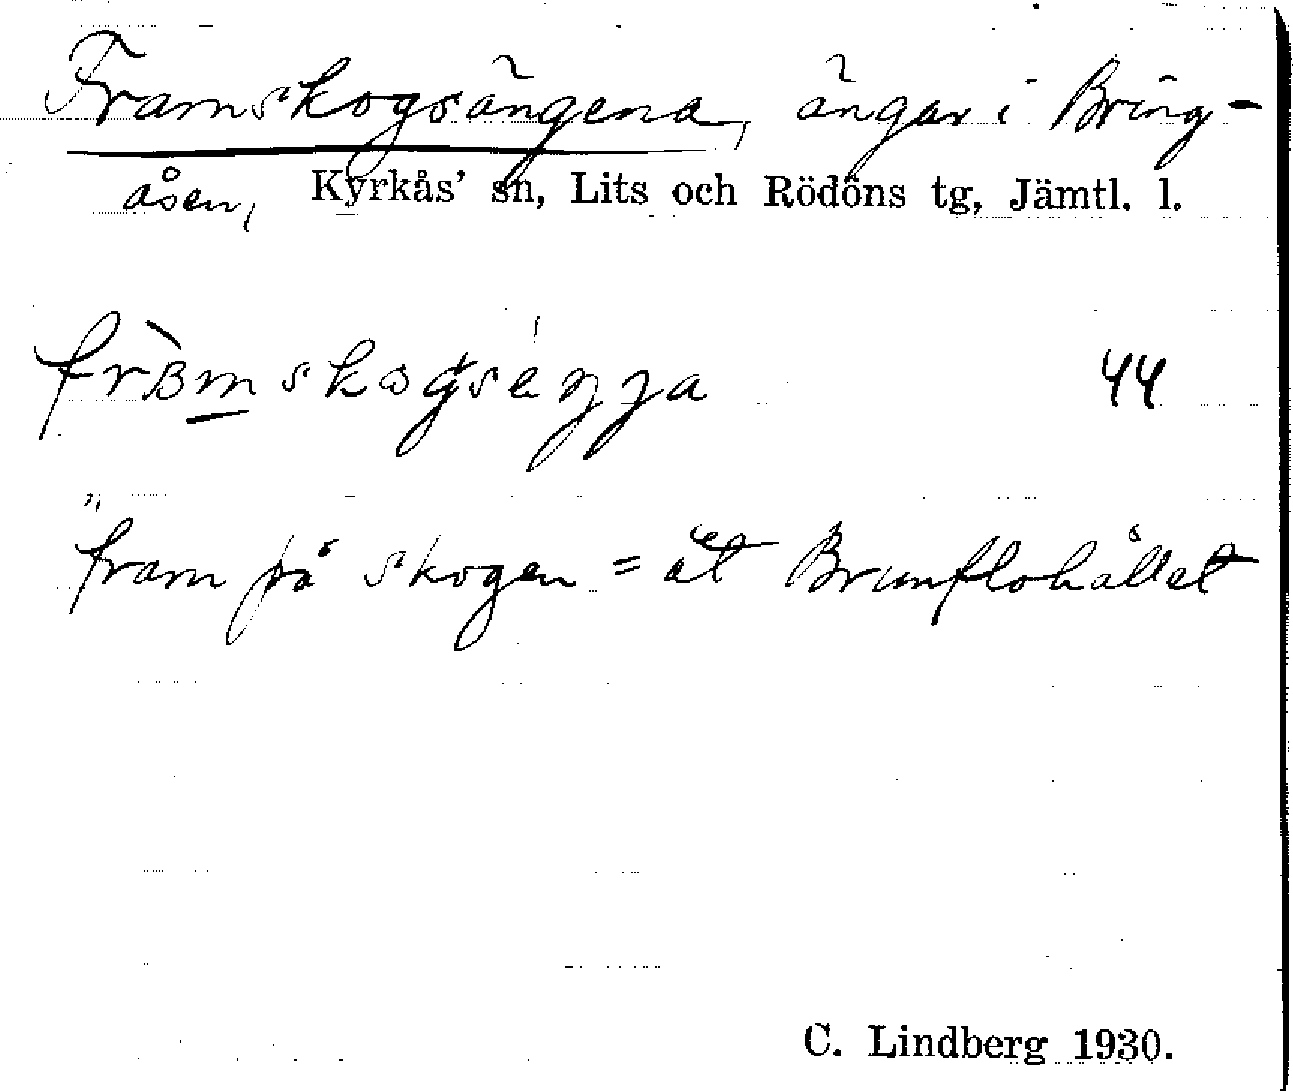 Framskogsängena, ängar i Bring-
åsen, Kyrkås' sn, Lits och Rödöns tg, Jämtl. l.
44
"fram på skogen = åt Brunflohållet
C. Lindberg 1930.